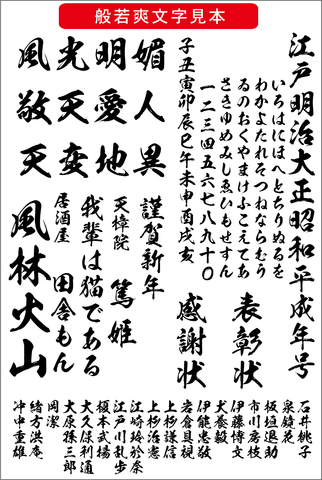 般若爽文字見本
江戸明治大正昭和平成年号
いろはにほへとちりぬるを
わかよたれそつねならむう
ゐのおくやまけふこえてあ
さきゆめみしゑひもせすん
一二三四五六七八九十〇
子丑寅卯辰巳午未申酉戌亥
表彰状
感謝状
風光明媚
敬天愛人
天変地異
謹賀新年
天樟院
篤姫
我輩は猫である
居酒屋
田舎もん
風林火山
石井桃子
泉鏡花
板垣退助
市川房枝
伊藤博文
犬養毅
伊能忠敬
岩倉具視
上杉謙信
上杉治憲
江崎玲於奈
江戸川乱歩
榎本武揚
大久保利通
大原孫三郎
岡潔
緒方洪庵
沖中重雄